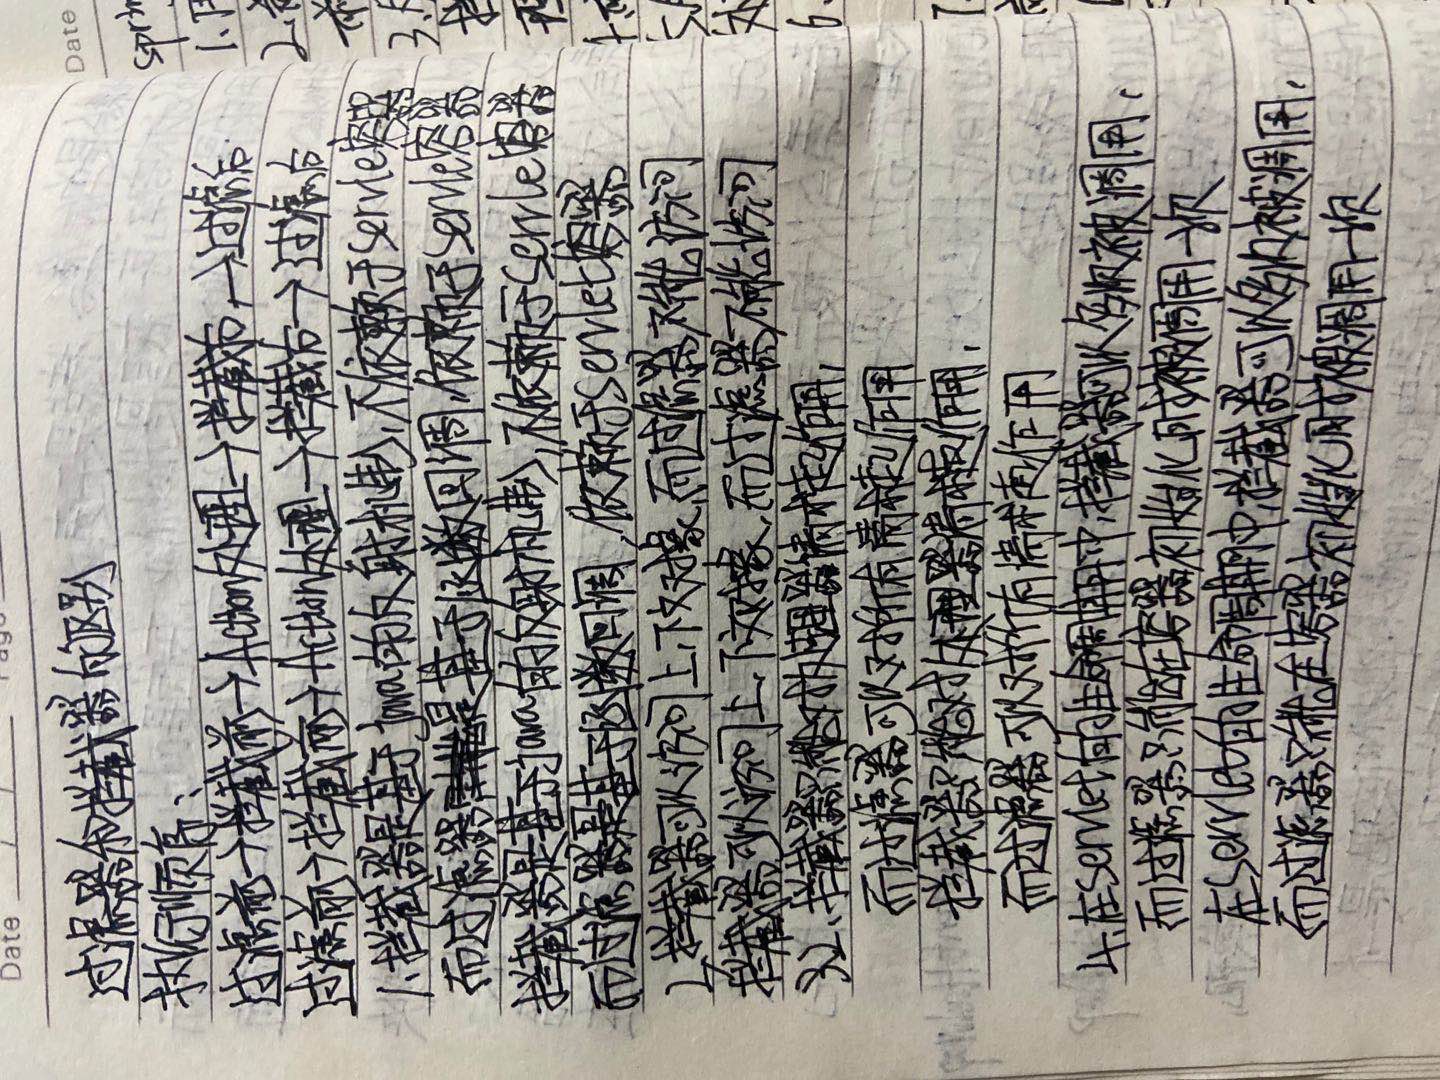 Date / / Page
过滤器和拦截器的区别
执行顺序：
过滤前→拦截前→Action处理→拦截后→过滤后
过滤前→拦截前→Action处理→拦截后→过滤后
1、拦截器是基于java的反射机制，不依赖于servle容器
而过滤器是基于函数回调，依赖于servle容器
拦截器是基于java的反射机制，不依赖于servle容器
而过滤器是基于函数回调，依赖于servlet容器
2、拦截器可以访问上、下文对象，而过滤器不能访问
拦截器可以访问上、下文对象，而过滤器不能访问
32、拦截器只能对处理器请求起作用，
而过滤器可以对所有请求起作用
拦截器只能对处理器请求起作用，
而过滤器可以对所有请求起作用
4、在servlet的生命周期中，拦截器可以多次被调用，
而过滤器只能在容器初始化时被调用一次
在servlet的生命周期中，拦截器可以多次被调用，
而过滤器只能在容器初始化时被调用一次
Date
1、
2、
3、
6、